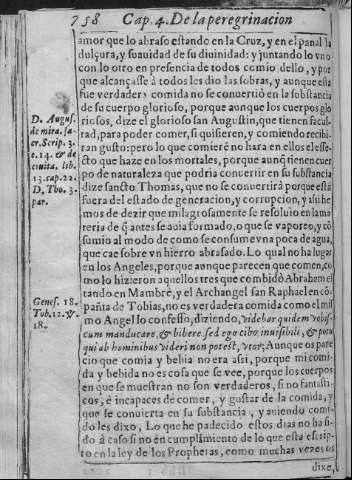 758 Cap. 4. De la peregrinacion
amor que lo abraso estando en la Cruz, y en el panal la
dulçura, y suauidad de su diuinidad: y juntando lo vno
con lo otro en presencia de todos comio dello, y por
que alcançasse à todos les dio las sobras, y aunque esta
fue verdadera comida no se conuertiò en la substancia
de su cuerpo glorioso, porque aunque los cuerpos glo
riosos, dize el glorioso san Augustin, que tienen facul-
tad, para poder comer, si quisieren, y comiendo recibi
ran gusto: pero lo que comierẽ no hara en ellos el effe-
cto que haze en los mortales, porque aunq̃ tienen cuer
po de naturaleza que podria conuertir en su substancia
dize sancto Thomas, que no se conuertirà porque està
fuera del estado de generacion, y corrupcion, y assi he
mos de dezir que milagrosamente se resoluio en la ma
teria de q̃ antes se auia formado, o que se vaporeo, y cõ
sumio al modo de como se consume vna poca de agua,
que cae sobre vn hierro abrasado. Lo qual no ha lugar
en los Angeles, porque aunque parecen que comen, co
mo lo hizieron aquellos tres que combidò Abraham es
tando en Mambrè, y el Archangel san Raphael en cõ
pañia de Tobias, no es verdadera comida como el mis
mo Angel lo confesso, diziendo, videbar quidem vobis-
cum manducare, & bibere, sed ego cibo inuisibili, & potu
qui ab hominibus videri non potest, vtor; Aunque os pare
cio que comia y bebia no era assi, porque mi comi-
da y bebida no es cosa que se vee, porque los cuerpos
en que se muestran no son verdaderos, si no fantasti-
cos, è incapaces de comer, y gustar de la comida, y
que se conuierta en su substancia, y auiendo comi-
do les dixo, Lo que he padecido estos dias no ha si-
do à caso si no en cumplimiento de lo que esta escrip-
to en la ley de los Prophetas, como muchas vezes os
dixe,
D. Augus.
de mira. sa-
cr. Scrip. 3.
c. 14. & de
ciuita. lib.
13. cap. 22.
D. Tho. 3.
par.
Genes. 18.
Tob. 12. &
18.